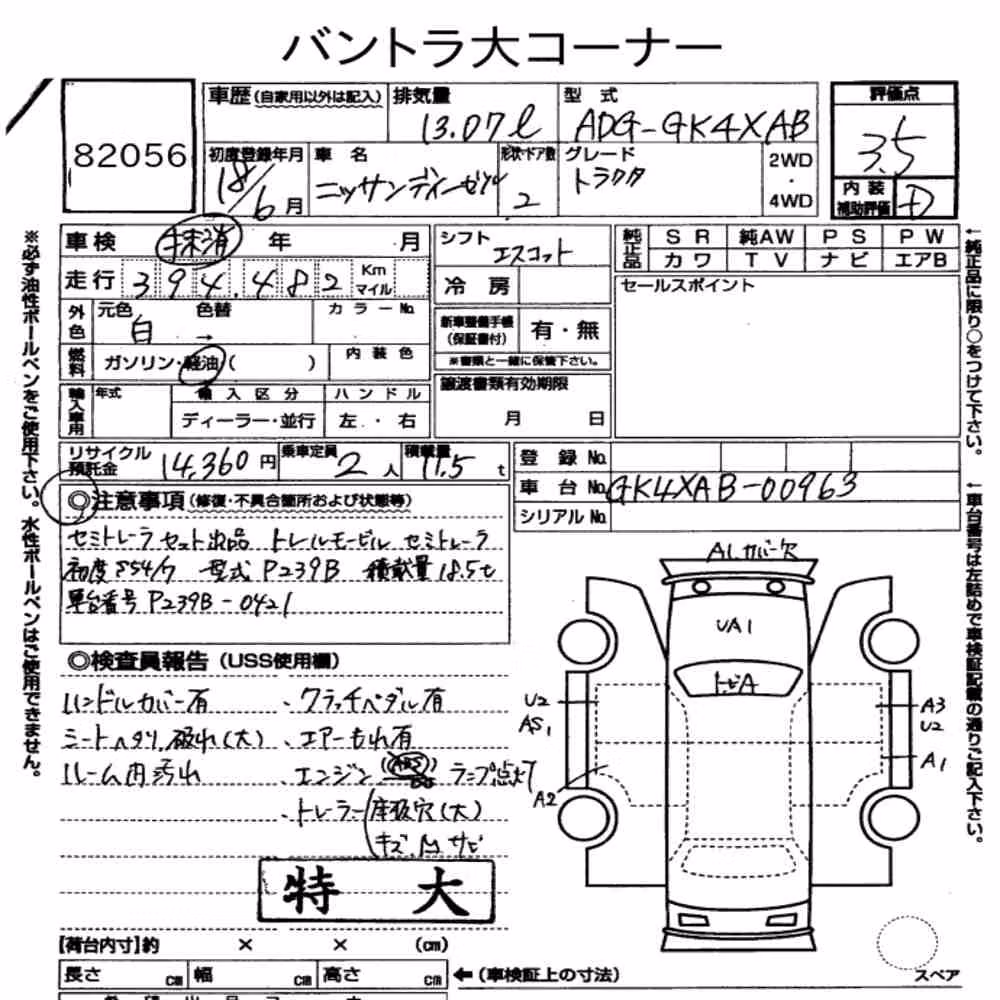 バントラ大コーナー
82056
車歴 (自家用以外は記入) 排気量 型式 評価点
13.07ℓ ADG-GK4XAB 3.5
初度登録年月 車名 形状・ドア数 グレード 2WD・4WD
18/6月 ニッサンディーゼル 2 トラクタ
内装補助評価 D
車検 抹消 年 月
シフト エスコット
純正品 SR 純AW PS PW
カワ TV ナビ エアB
走行 394,482 Km マイル
冷房
セールスポイント
外色 元色 色替 カラーNo.
白 →
新車整備手帳(保証書付) 有・無
※書類と一緒に保管下さい。
燃料 ガソリン・軽油( ) 内装色
譲渡書類有効期限
月 日
輸入車用 年式 輸入区分 ハンドル
ディーラー・並行 左・右
リサイクル預託金 14,360円 乗車定員 2人 積載量 11.5t
登録No.
車台No. GK4XAB-00963
シリアルNo.
◎注意事項(修復・不具合箇所および状態等)
セミトレーラ セット出品 トレールモービル セミトレーラ
初度 S54/7 型式 P239B 積載量 18.5t
車台番号 P239B-0421
◎検査員報告(USS使用欄)
ハンドルカバー有 ・クラッチペダル有
シートヘタリ、破れ(大) ・エアーもれ有
ルーム内汚れ ・エンジン ABS ランプ点灯
・トレーラー 座板穴(大)
キズ、凹 サビ
特大
A1 カバー欠
UA1
トビA
U2
AS1
A2
A3
U2
A1
スペア
[荷台内寸]約 × × (cm)
長さ cm 幅 cm 高さ cm ←(車検証上の寸法)
※必ず油性ボールペンをご使用下さい。水性ボールペンはご使用できません。
←純正品に限り○をつけて下さい。
←車台番号は左詰めで車検証記載の通りご記入下さい。